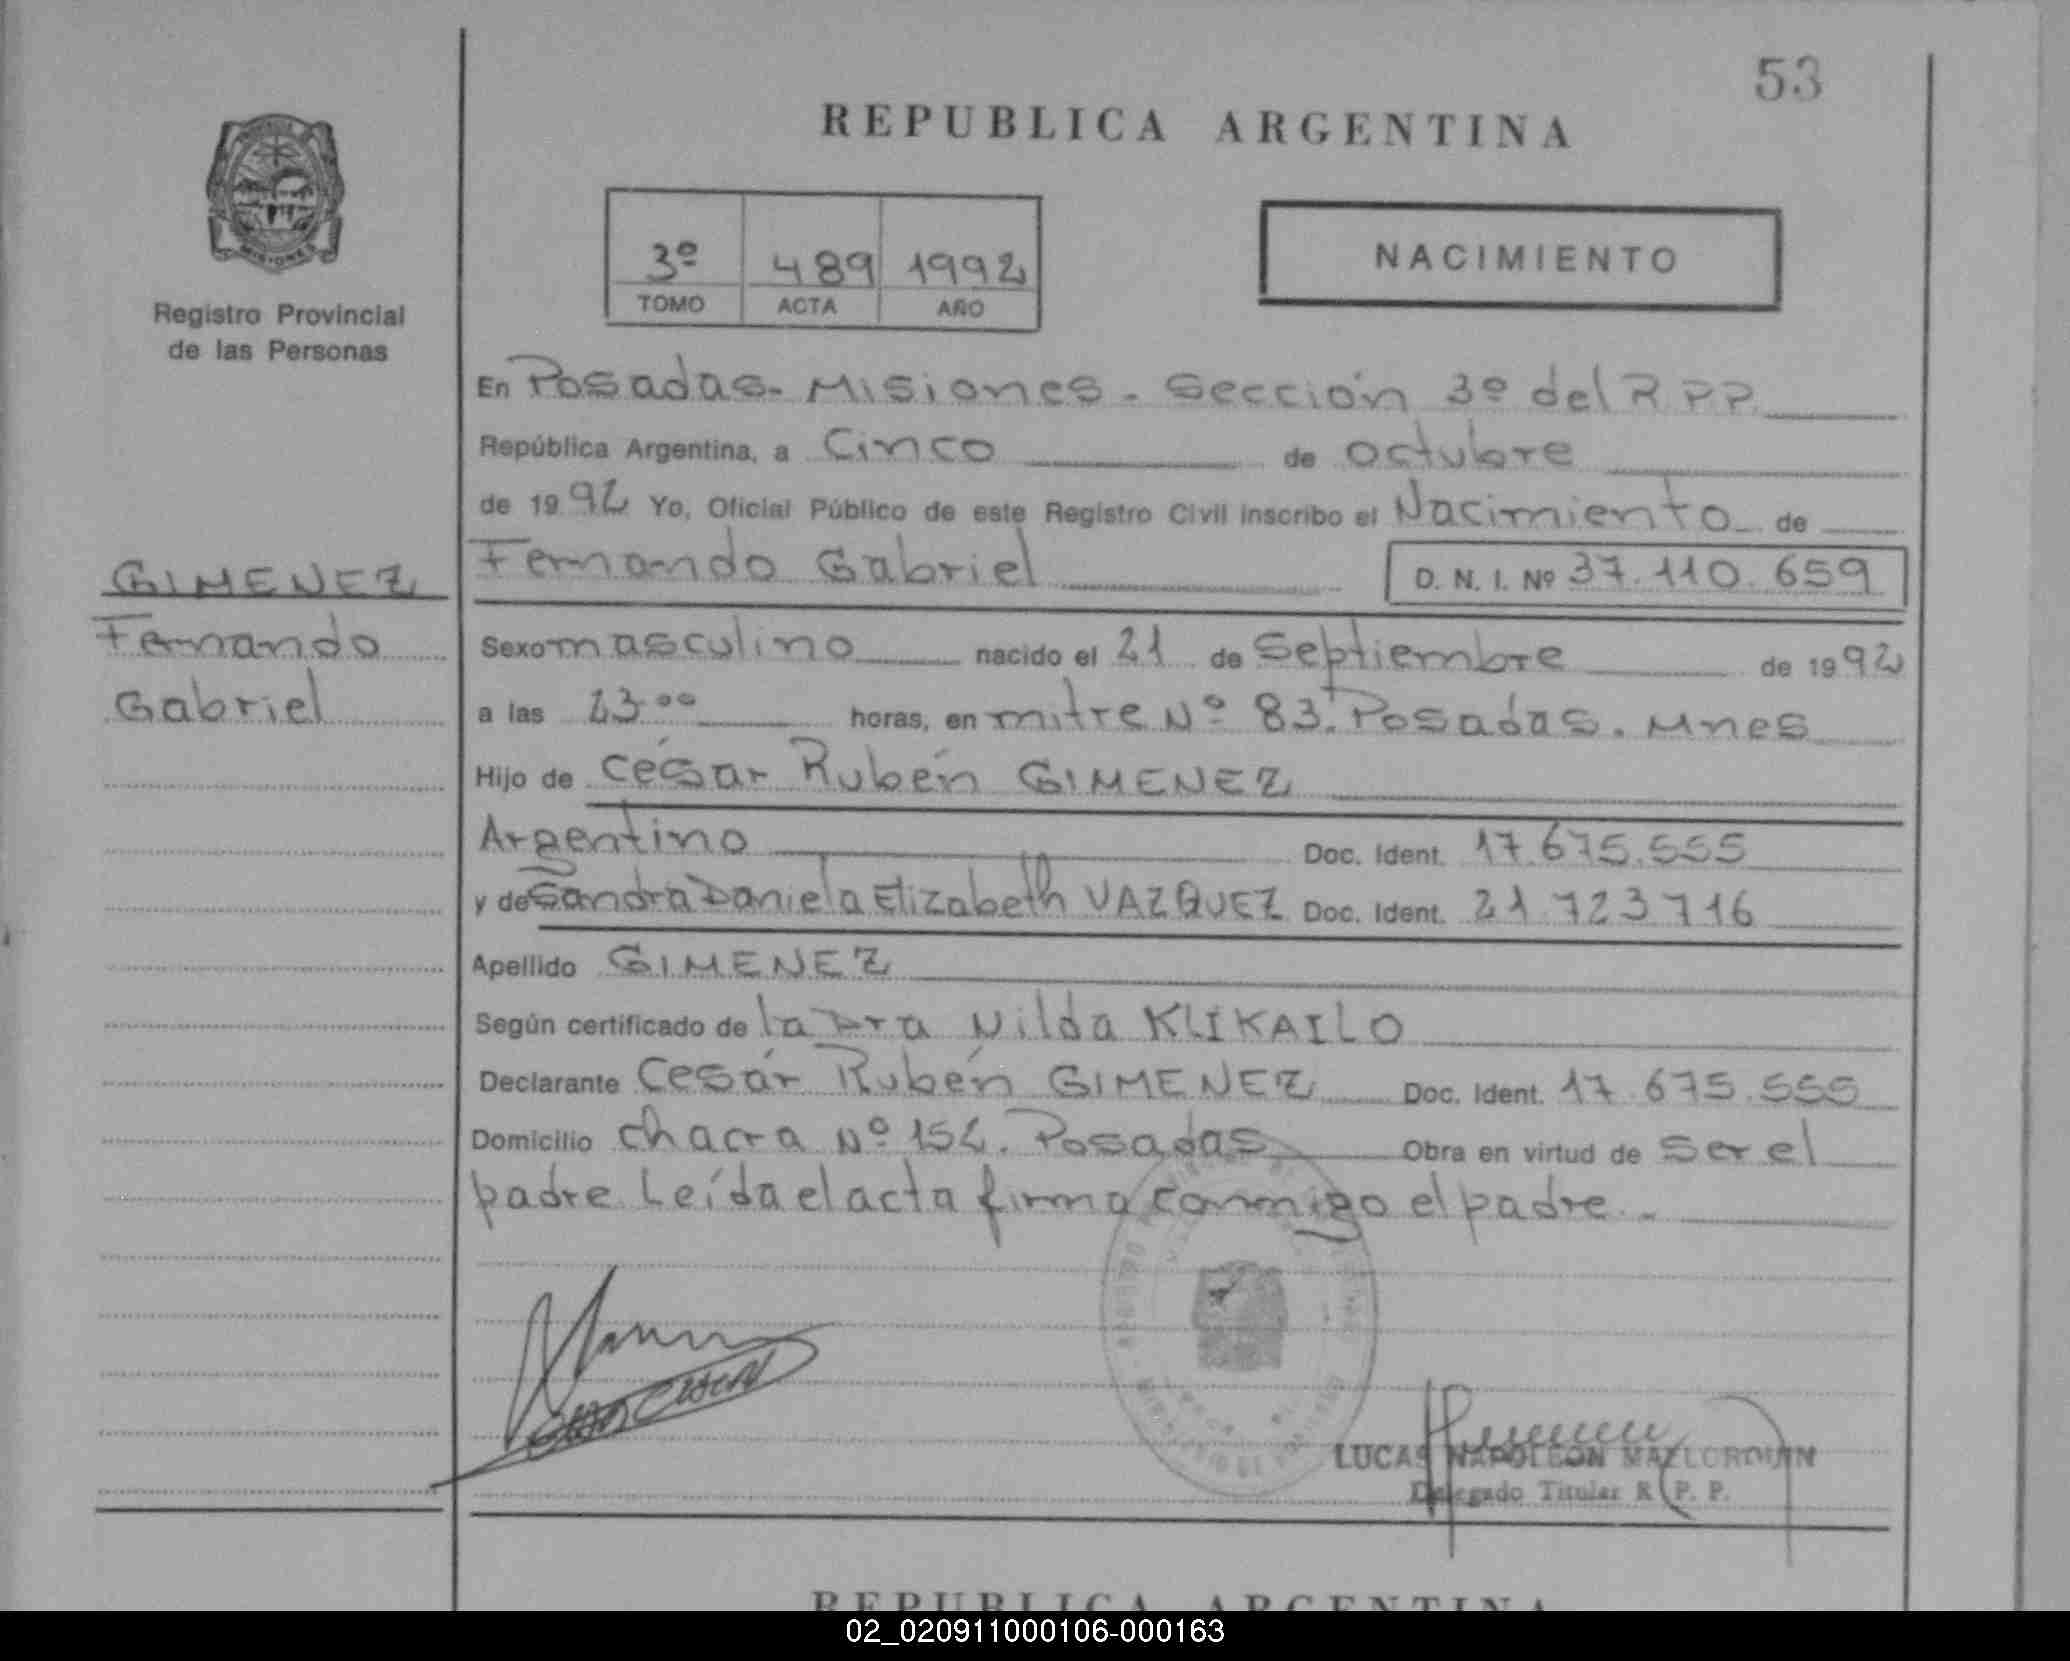 53
REPUBLICA ARGENTINA
Registro Provincial
de las Personas
3º 489 1992
TOMO ACTA AÑO
NACIMIENTO
En Posadas- Misiones - Sección 3º del R P P.
República Argentina, a Cinco de octubre
de 1992 Yo, Oficial Público de este Registro Civil inscribo el Nacimiento de
Fernando Gabriel D. N. I. Nº 37.110.659
GIMENEZ
Fernando
Gabriel
Sexo masculino nacido el 21 de Septiembre de 1992
a las 23.00 horas, en mitre Nº 83. Posadas. Mnes
Hijo de César Rubén GIMENEZ
Argentino Doc. Ident. 17.675.555
y de Sandra Daniela Elizabeth VAZQUEZ Doc. Ident. 21.723716
Apellido GIMENEZ
Según certificado de la Dra Nilda KLIKAILO
Declarante Cesár Rubén GIMENEZ Doc. Ident. 17.675.555
Domicilio chacra Nº 152. Posadas Obra en virtud de Ser el
padre. Leída el acta firma conmigo el padre.-
LUCAS NAPOLEON
Delegado Titular R. P. P.
REPUBLICA ARGENTINA
02_020911000106-000163